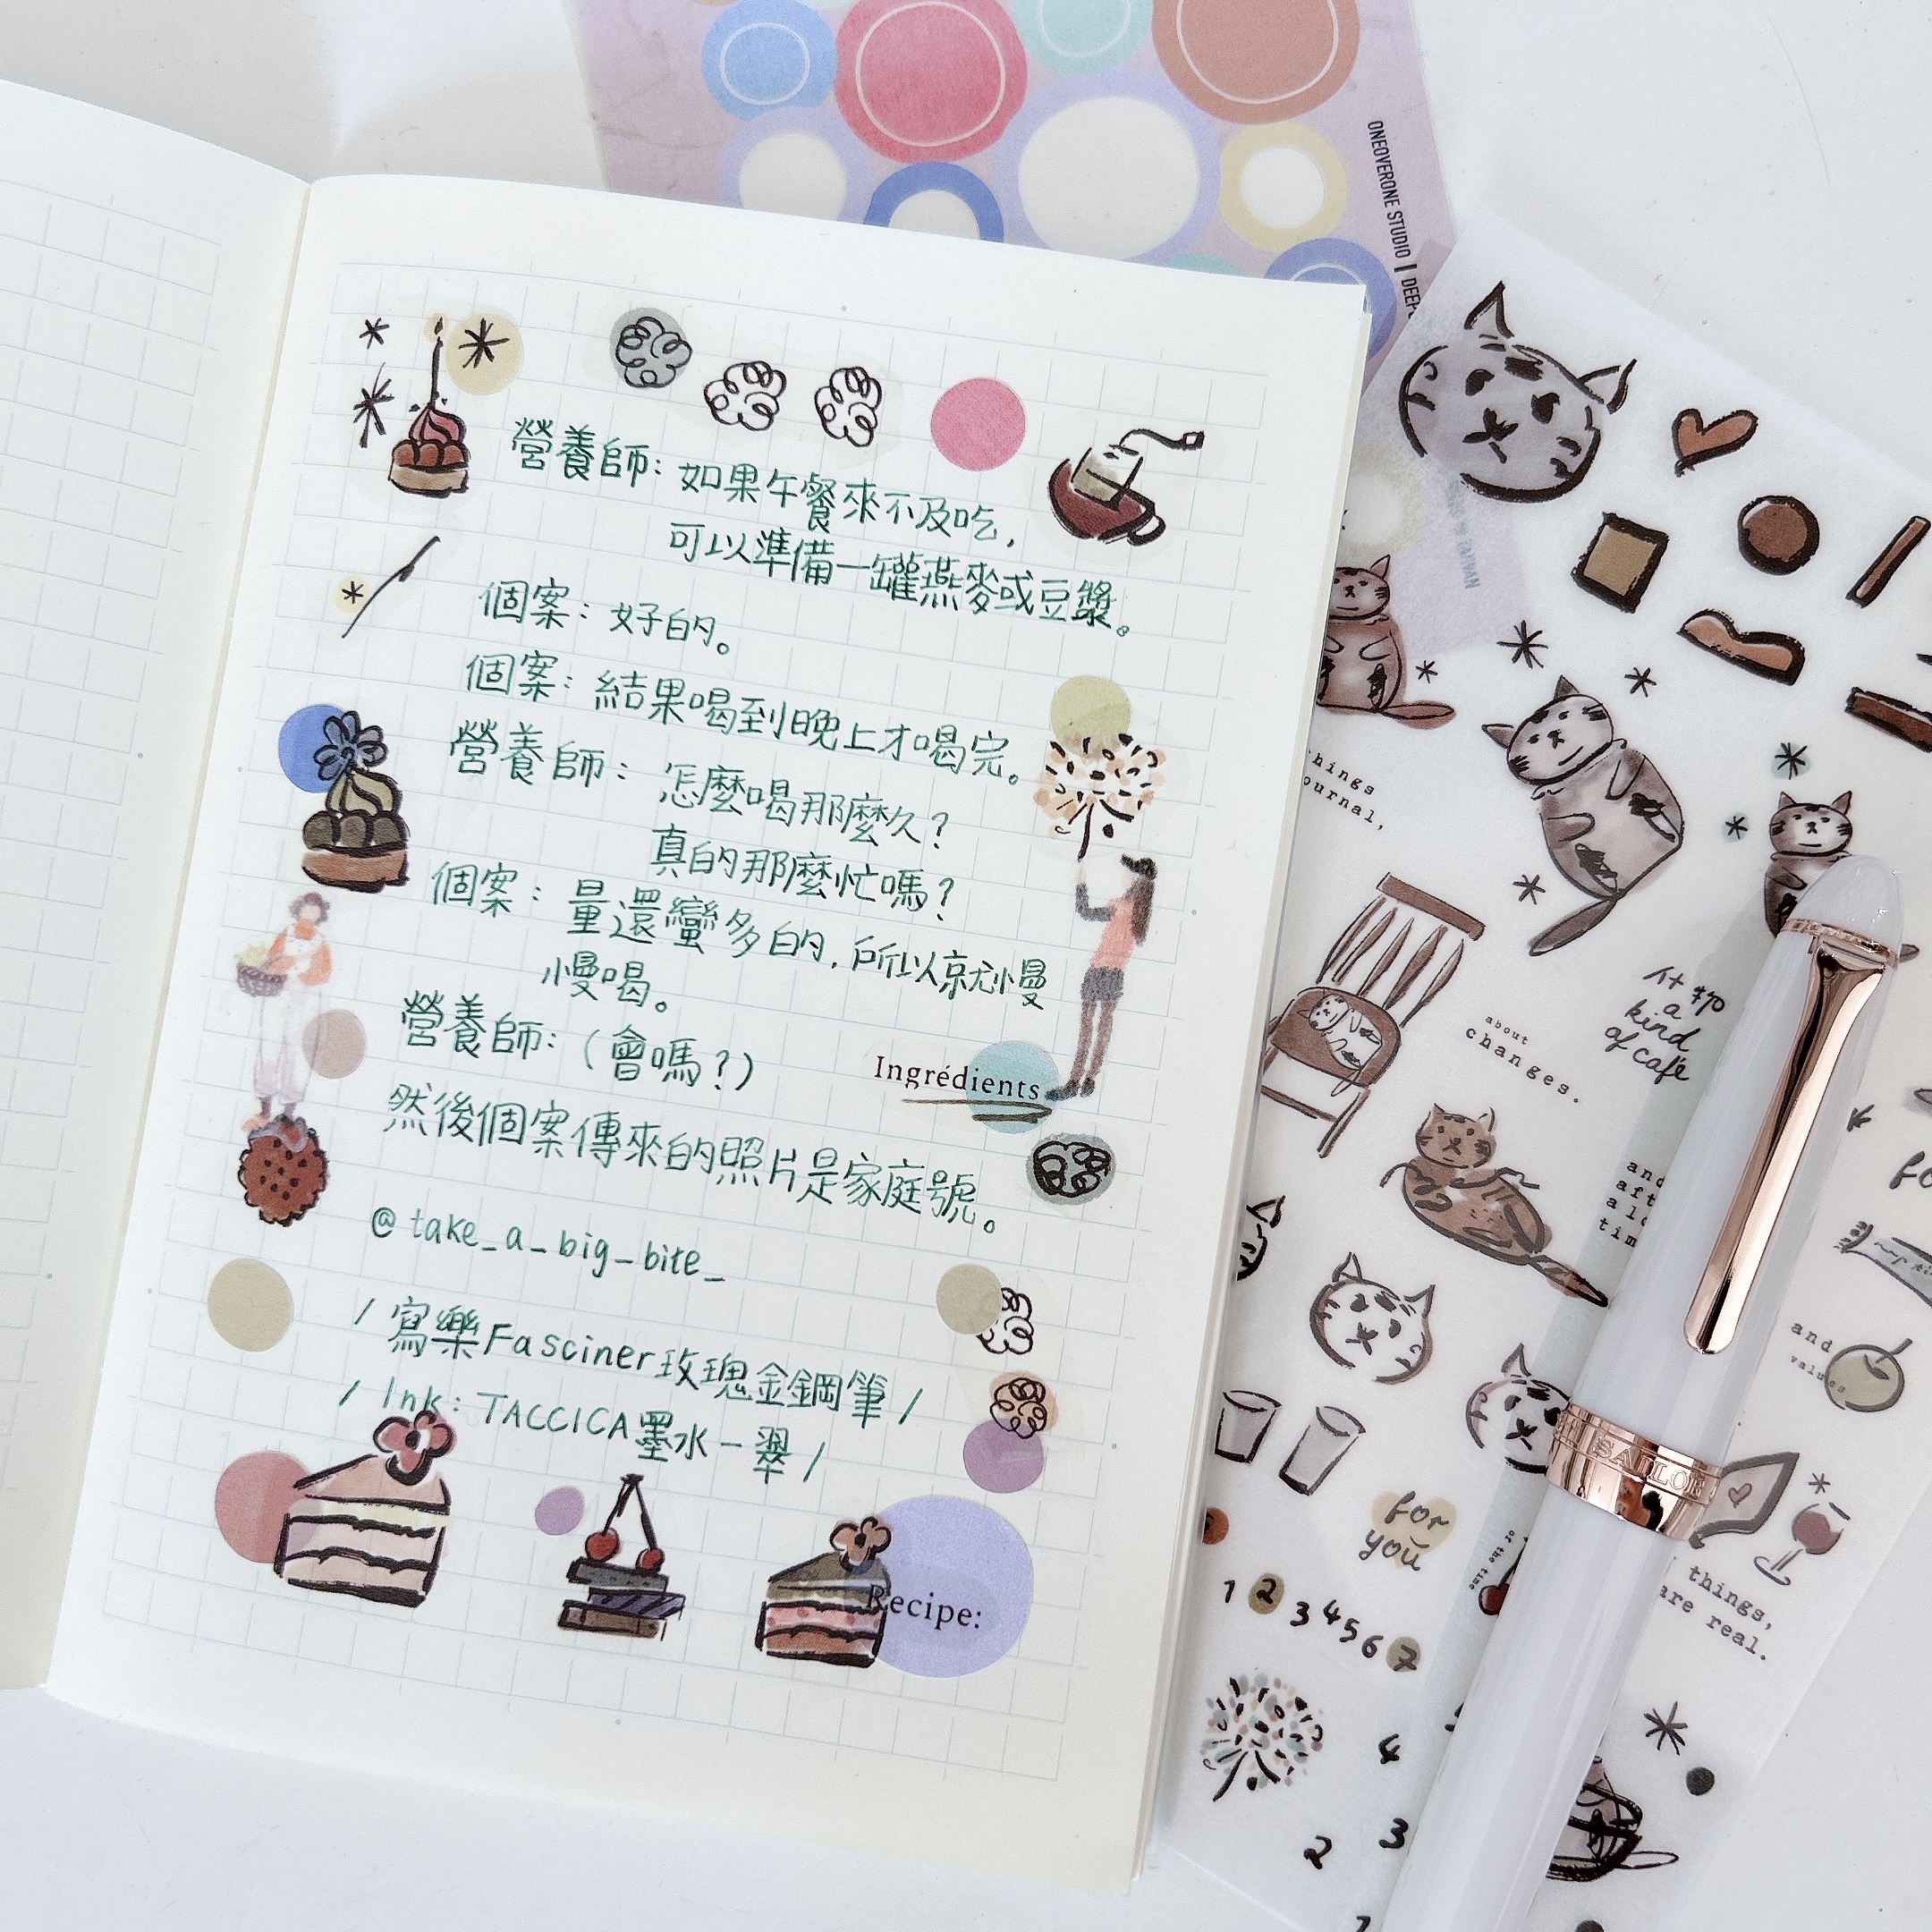 ONEOVERONE STUDIO | DEEP
營養師：如果午餐來不及吃，
可以準備一罐燕麥或豆漿。
個案：好的。
個案：結果喝到晚上才喝完。
營養師：怎麼喝那麼久？
真的那麼忙嗎？
個案：量還蠻多的，所以就慢
慢喝。
營養師：（會嗎？）
Ingrédients
然後個案傳來的照片是家庭號。
@take_a_big_bite_
/ 寫樂Fasciner玫瑰金鋼筆 /
/ Ink：TACCICA墨水－翠 /
Recipe:
about
changes.
a
kind
of café
and
for
you
1 2 3 4 5 6 7
things,
are real.
4
3
2